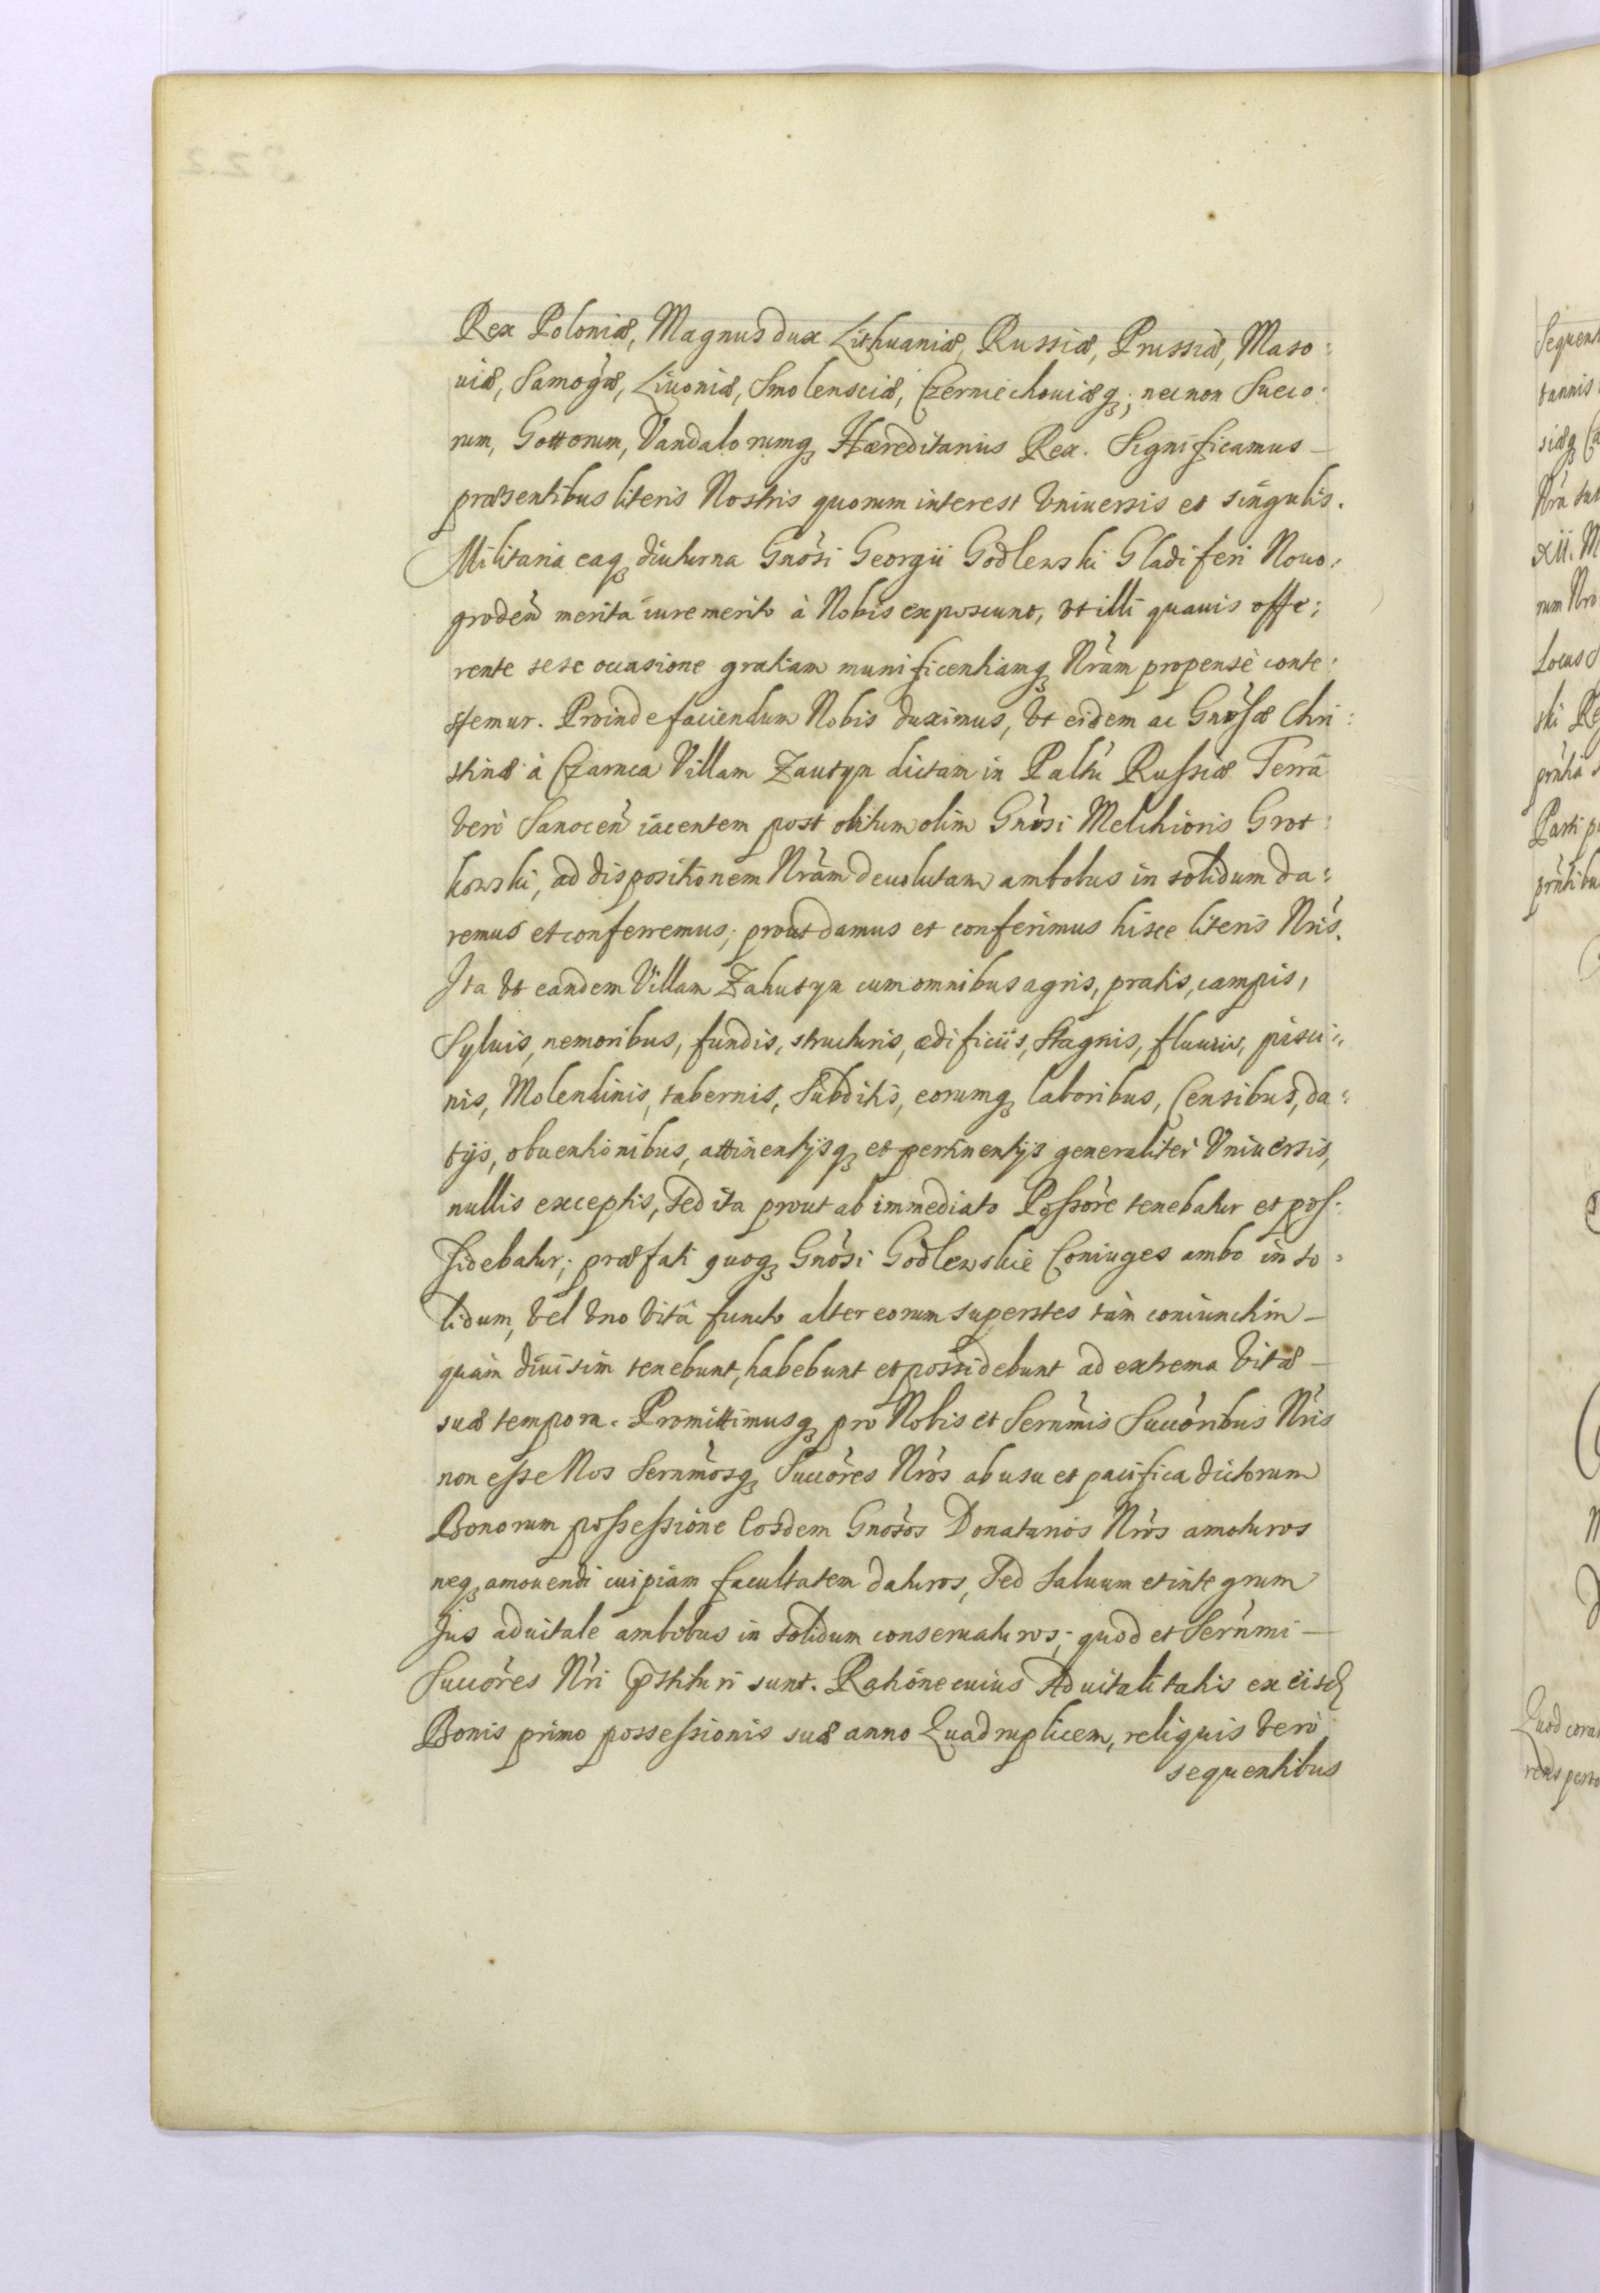 Rex Poloniæ, Magnus dux Lithuaniæ, Russiæ, Prussiæ, Maso:
uiæ, Samogæ, Liuoniæ, Smolensciæ, Czerniechouiæq; necnon Sueco:
rum, Gottorum, Vandalorumq Hæreditarius Rex. Significamus
præsentibus literis Nostris quorum interest Vniuersis et singulis.
Militaria eaq diuturna Gnosi Georgii Godlewski Gladiferi Nouo:
groden merita iure merito à Nobis exposcunt, vt illi quauis offe:
rente sese occasione gratiam munificentiamq Nram propensè conte:
stemur. Proinde faciendum Nobis duximus, Vt eidem ac Gnosæ Chri:
stinæ à Czarnca Villam Zautyn dictam in Paltu Russiæ Terrâ
Verò Sanocen iacentem post obitum olim Gnosi Melchioris Grot:
kowski, ad dispositionem Nram deuolutam ambobus in solidum da:
remus et conferremus; prout damus et conferimus hisce literis Nris.
Ita Vt eandem Villam Zahutyn cum omnibus agris, pratis, campis,
Syluis, nemoribus, fundis, structuris, ædificiis, stagnis, fluuiis, pisci:
nis, Molendinis, tabernis, Subditis, eorumq laboribus, Censibus, da:
tijs, obuentionibus, attinentijsq et pertinentijs generaliter Vniuersis,
nullis exceptis, Sed ita prout ab immediato Possore tenebatur et pos:
sidebatur; præfati quoq Gnosi Godlewskie Coniuges ambo in so:
lidum, Vel Vno Vitâ functo alter eorum superstes tàm coniunctim
quàm diuisim tenebunt, habebunt et possidebunt ad extrema Vitæ
suæ tempora. Promittimusq pro Nobis et Sernmis Succoribus Nris
non esse Nos Sernmosq Succores Nros ab usu et pacifica dictorum
Bonorum possessione Eosdem Gnosos Donatarios Nros amoturos
neq amouendi cuipiam facultatem daturos, Sed saluum et integrum
Jus aduitale ambobus in solidum conseruaturos; quod et Sernmi
Succores Nri pstituri sunt. Ratione cuius Aduitalitatis ex eisd
Bonis primo possessionis suæ anno Quadruplicem, reliquis Verò
sequentibus